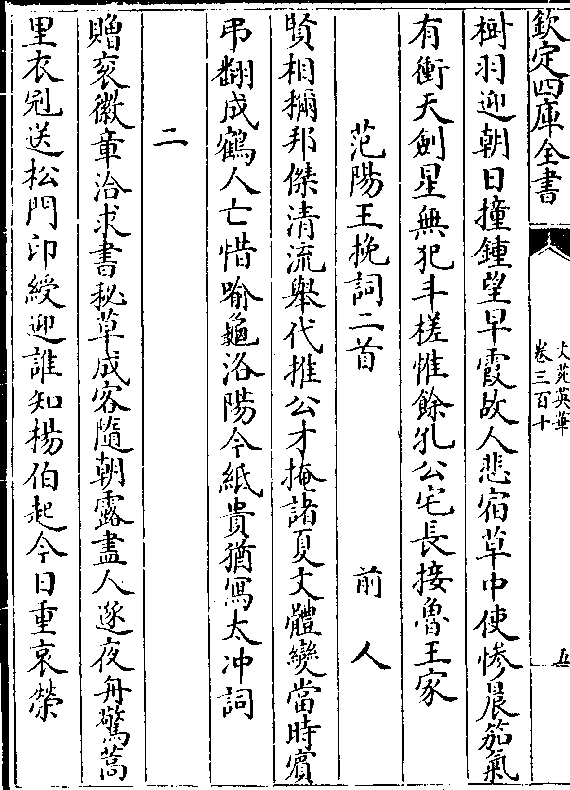 欽定四庫全書
文苑英華
卷三百十
五
樹羽迎朝日撞鍾望早霞故人悲宿草中使慘晨笳氣
有衝天劍星無犯斗槎惟餘孔公宅長接魯王家
范陽王挽詞二首
前人
賢相稱邦傑清流舉代推公才掩諸夏文體變當時賓
弔翻成鶴人亡惜喻龜洛陽今紙貴猶寫太冲詞
二
贈衮徽章洽求書秘草成客隨朝露盡人逐夜舟驚蒿
里衣冠送松門印綬迎誰知楊伯起今日重哀榮